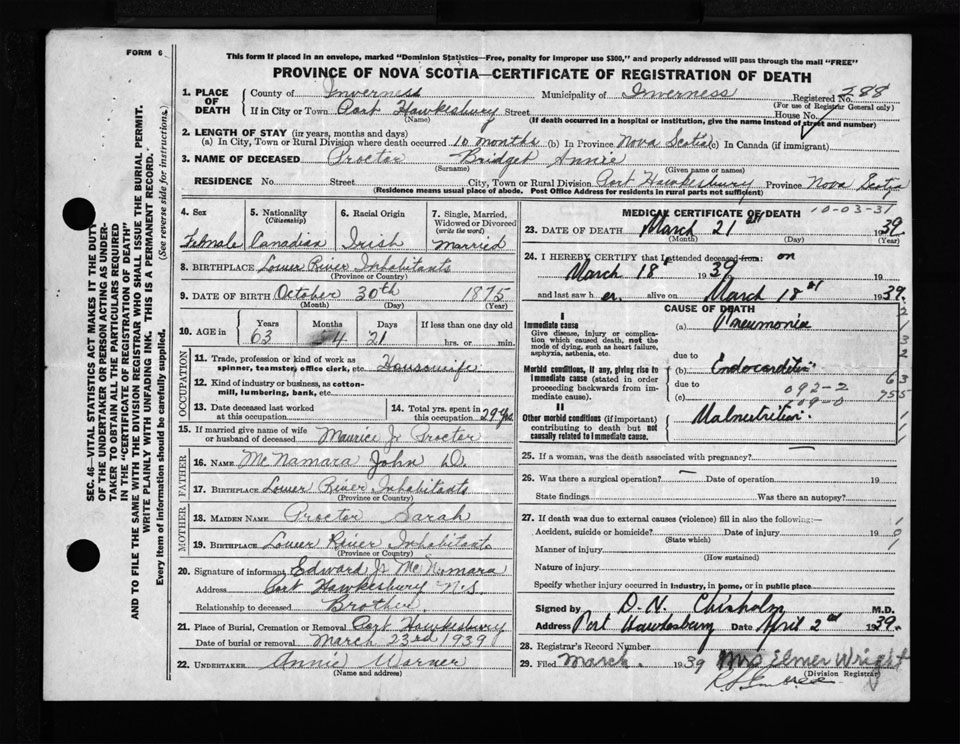 FORM 6
This form if placed in an envelope, marked "Dominion Statistics—Free, penalty for improper use $300," and properly addressed will pass through the mail "FREE"
PROVINCE OF NOVA SCOTIA—CERTIFICATE OF REGISTRATION OF DEATH
SEC. 46—VITAL STATISTICS ACT MAKES IT THE DUTY
OF THE UNDERTAKER OR PERSON ACTING AS UNDER-
TAKER TO OBTAIN ALL THE PARTICULARS REQUIRED
IN THE "CERTIFICATE OF REGISTRATION OF DEATH"
AND TO FILE THE SAME WITH THE DIVISION REGISTRAR WHO SHALL ISSUE THE BURIAL PERMIT.
WRITE PLAINLY WITH UNFADING INK. THIS IS A PERMANENT RECORD.
Every item of information should be carefully supplied. (See reverse side for instructions.)
1. PLACE OF DEATH
County of Inverness Municipality of Inverness Registered No. 288
(For use of Registrar General only)
If in City or Town Port Hawkesbury Street House No.
(Name) (If death occurred in a hospital or institution, give the name instead of street and number)
2. LENGTH OF STAY (in years, months and days)
(a) In City, Town or Rural Division where death occurred 10 months (b) In Province Nova Scotia (c) In Canada (if immigrant)
3. NAME OF DECEASED Proctor Bridget Annie
(Surname) (Given name or names)
RESIDENCE No. Street City, Town or Rural Division Port Hawkesbury Province Nova Scotia
(Residence means usual place of abode. Post Office Address for residents in rural parts not sufficient)
4. Sex 5. Nationality (Citizenship) 6. Racial Origin 7. Single, Married, Widowed or Divorced (write the word)
Female Canadian Irish Married
8. BIRTHPLACE Lower River Inhabitants
(Province or Country)
9. DATE OF BIRTH October 30th 1875
(Month) (Day) (Year)
10. AGE in Years Months Days If less than one day old
63 4 21 hrs. or min.
OCCUPATION
11. Trade, profession or kind of work as spinner, teamster, office clerk, etc. Housewife
12. Kind of industry or business, as cotton-mill, lumbering, bank, etc.
13. Date deceased last worked at this occupation
14. Total yrs. spent in this occupation 29 Yrs.
15. If married give name of wife or husband of deceased Maurice Jr Procter
FATHER
16. NAME McNamara John D.
17. BIRTHPLACE Lower River Inhabitants
(Province or Country)
MOTHER
18. MAIDEN NAME Proctor Sarah
19. BIRTHPLACE Lower River Inhabitants
(Province or Country)
20. Signature of informant Edward Jr McNamara
Address Port Hawkesbury N.S.
Relationship to deceased Brother.
21. Place of Burial, Cremation or Removal Port Hawkesbury
Date of burial or removal March 23rd 1939
22. UNDERTAKER Annie Warner
(Name and address)
MEDICAL CERTIFICATE OF DEATH
10-03-37
23. DATE OF DEATH March 21st 1939
(Month) (Day) (Year)
24. I HEREBY CERTIFY that I attended deceased from: on
March 18th 1939 19
and last saw h er. alive on March 18th 1939.
CAUSE OF DEATH
I
Immediate cause
Give disease, injury or complication which caused death, not the mode of dying, such as heart failure, asphyxia, asthenia, etc.
(a) Pneumonia
due to
Morbid conditions, if any, giving rise to immediate cause (stated in order proceeding backwards from immediate cause).
(b) Endocarditis
due to 092-2
(c) 209-0
II
Other morbid conditions (if important) contributing to death but not causally related to immediate cause.
Malnutrition
25. If a woman, was the death associated with pregnancy?
26. Was there a surgical operation? Date of operation 19
State findings Was there an autopsy?
27. If death was due to external causes (violence) fill in also the following:—
Accident, suicide or homicide? Date of injury 19
(State which)
Manner of injury
(How sustained)
Nature of injury
Specify whether injury occurred in industry, in home, or in public place.
Signed by D. N. Chisholm M.D.
Address Port Hawkesbury Date April 2nd 1939.
28. Registrar's Record Number
29. Filed March. 1939 Mrs Elmer Wright
(Division Registrar)